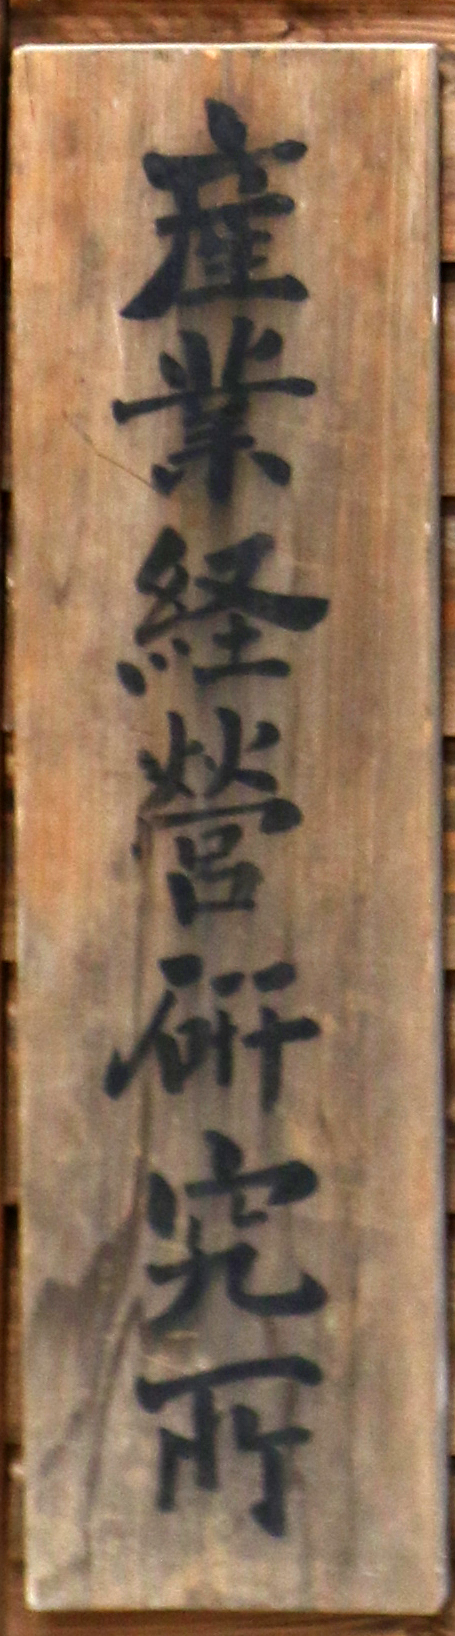 産業経營研究所